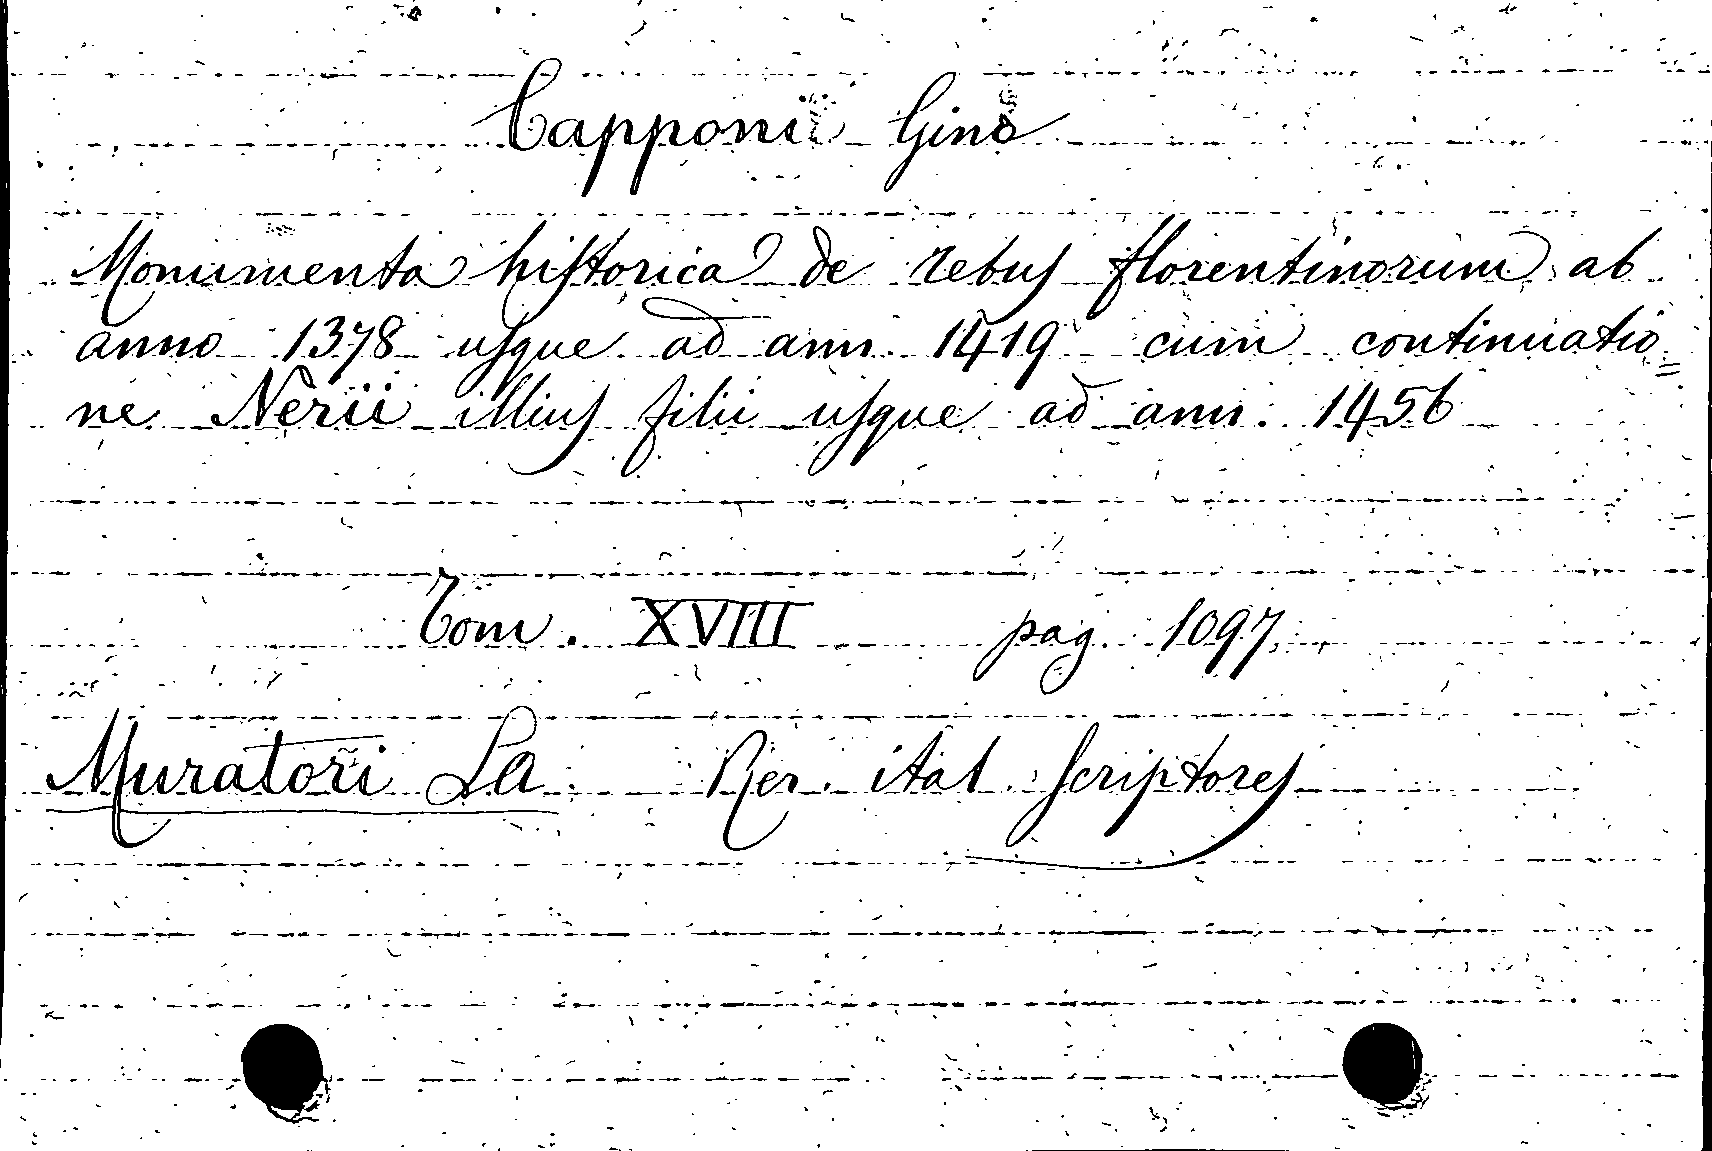 Capponi Gino
Monumenta historica de rebus florentinorum ab
anno 1378 usque ad ann. 1419 cum continuatio=
ne Nerii illius filii usque ad ann. 1456
Tom. XVIII pag. 1097.
Muratori La Rer. ital. scriptores